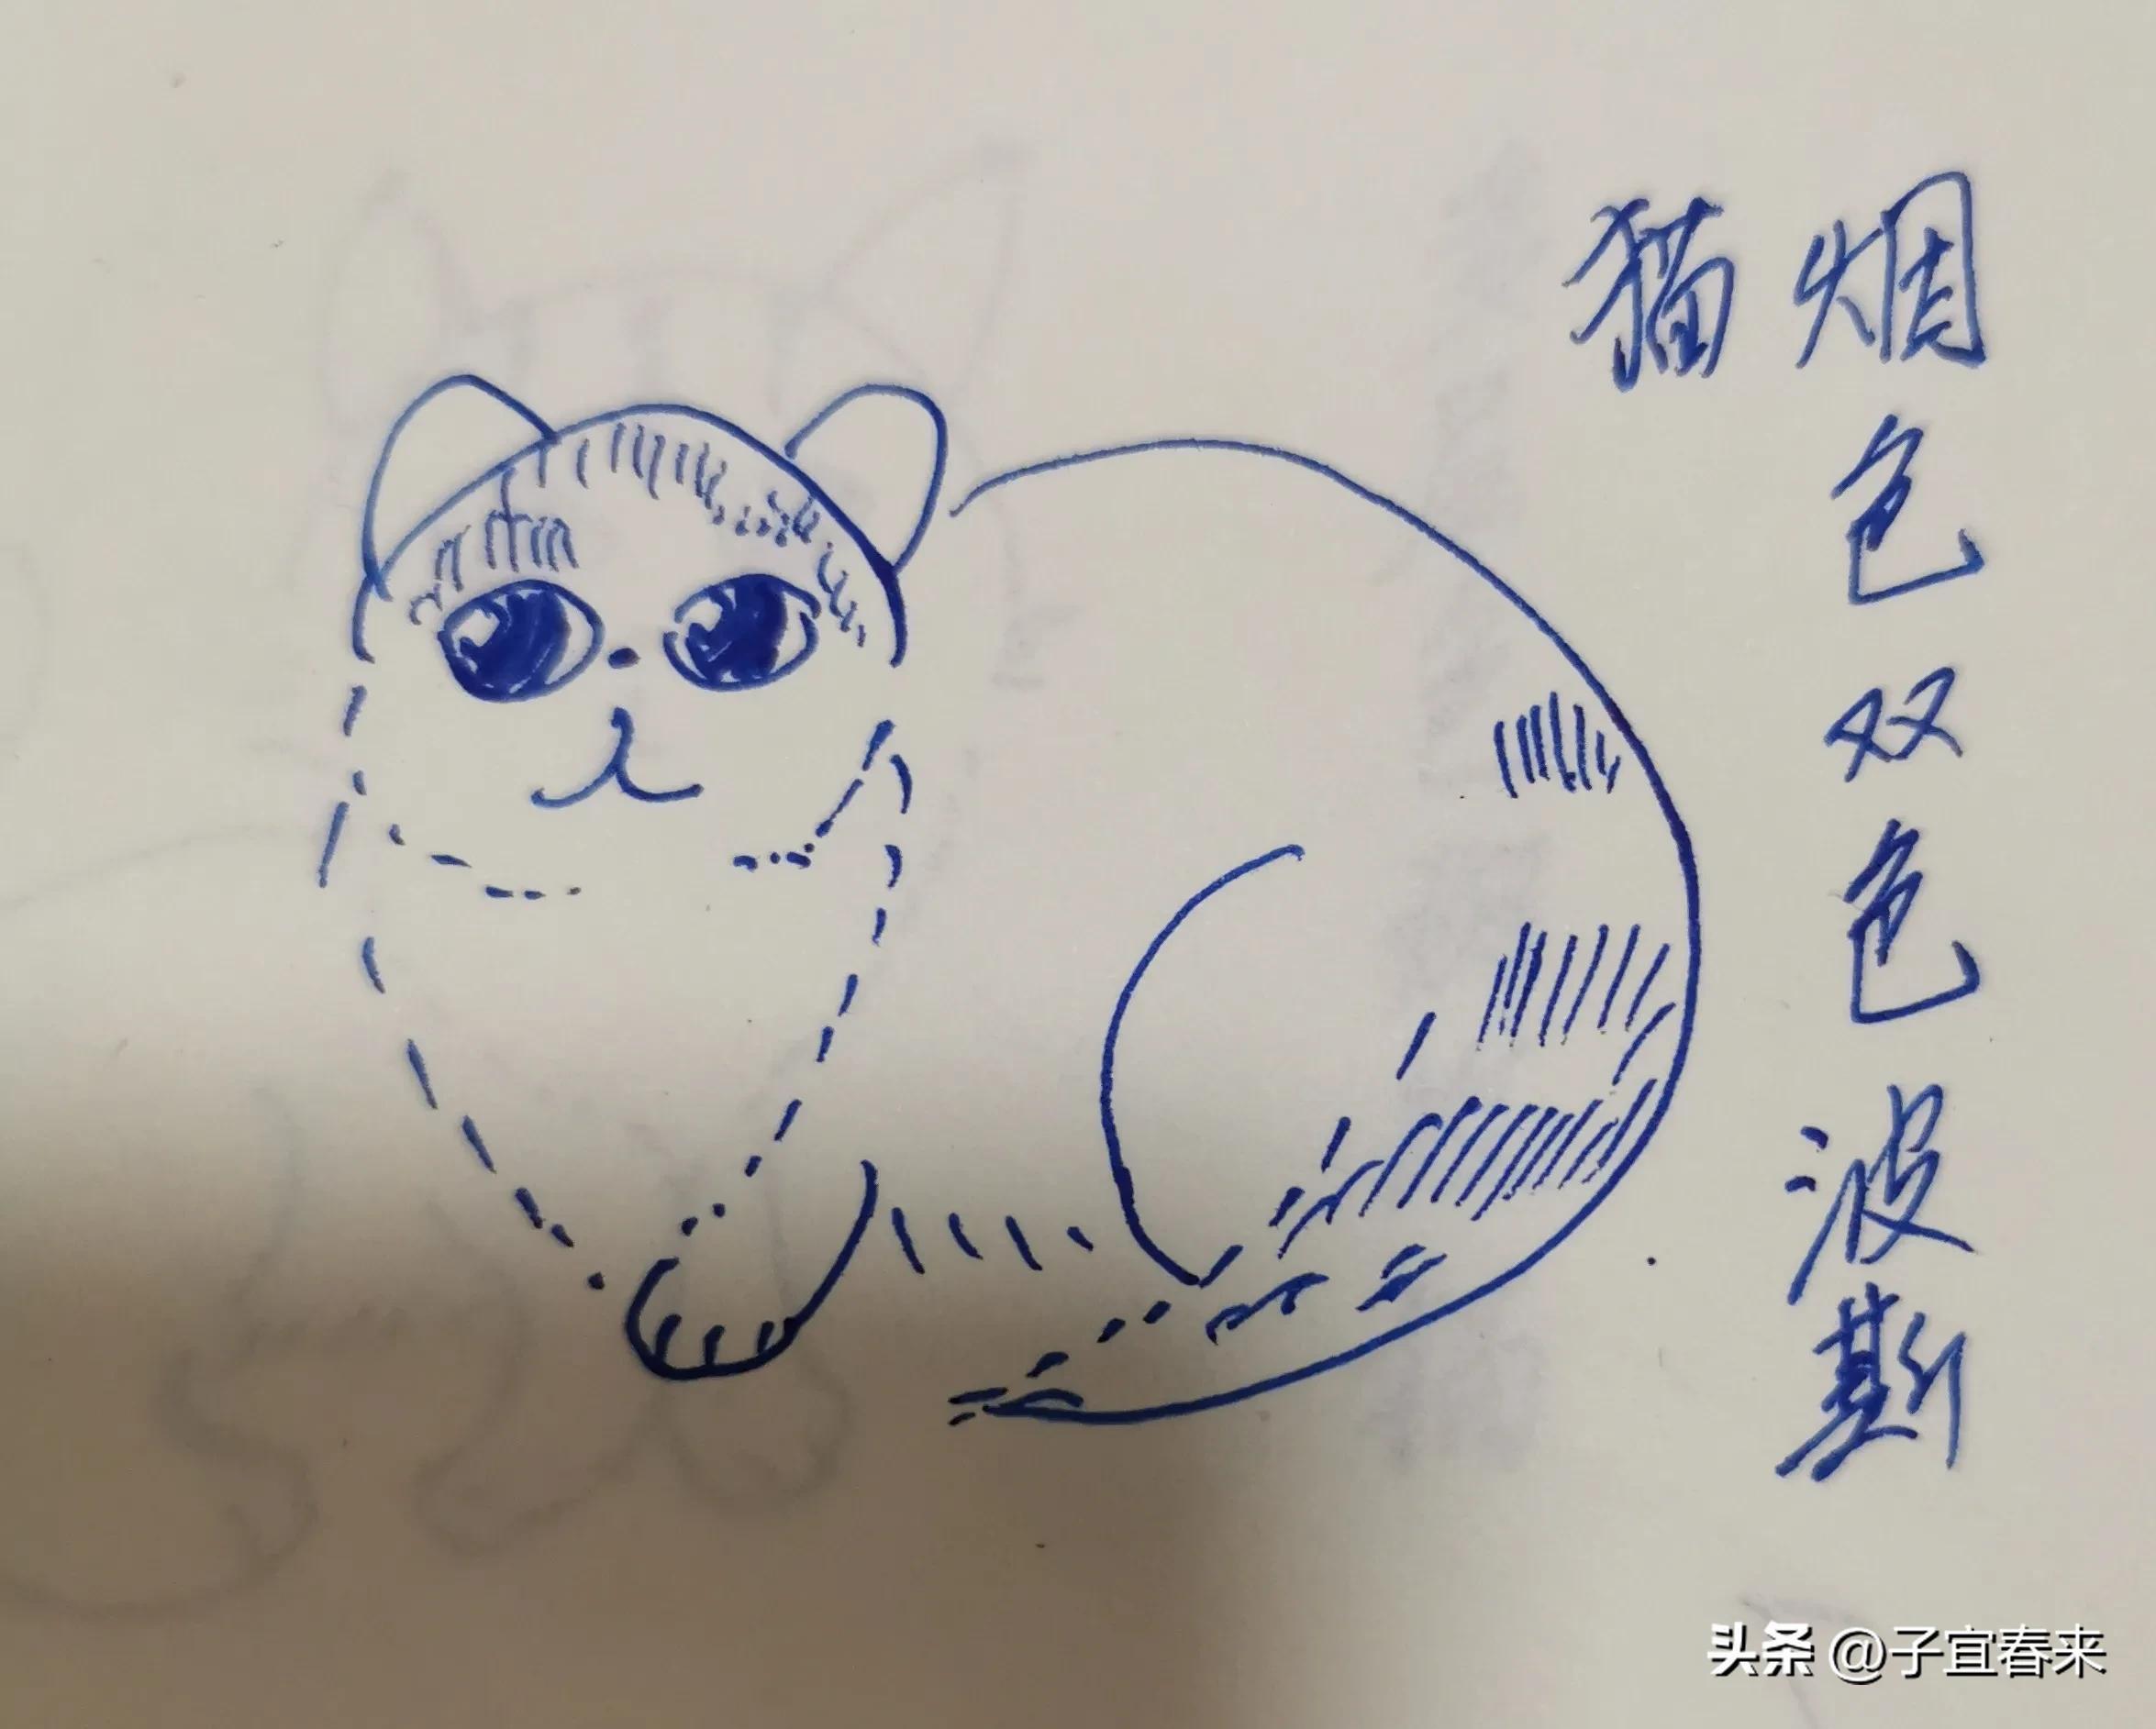 烟色双色波斯
猫
头条 @子宜春来